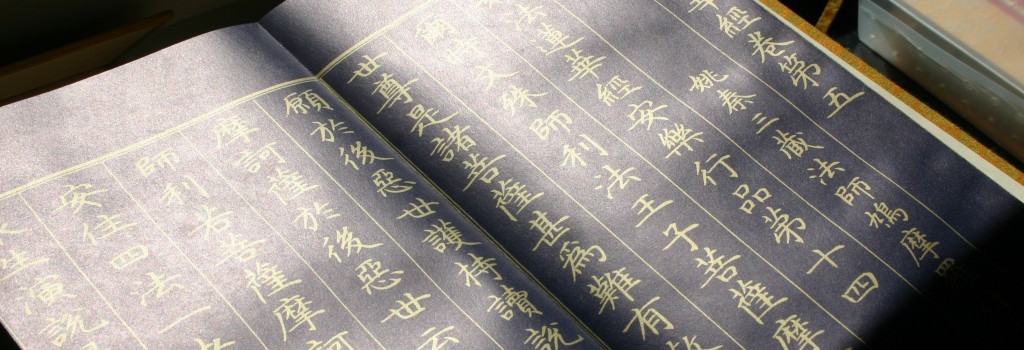 華經卷第五
姚秦三藏法師鳩摩
法蓮華經安樂行品第十四
爾時文殊師利法王子菩薩摩
世尊是諸菩薩甚爲難有
願於後惡世護持讀說
摩訶薩於後惡世云
師利若菩薩摩訶
安住四法一
生演說